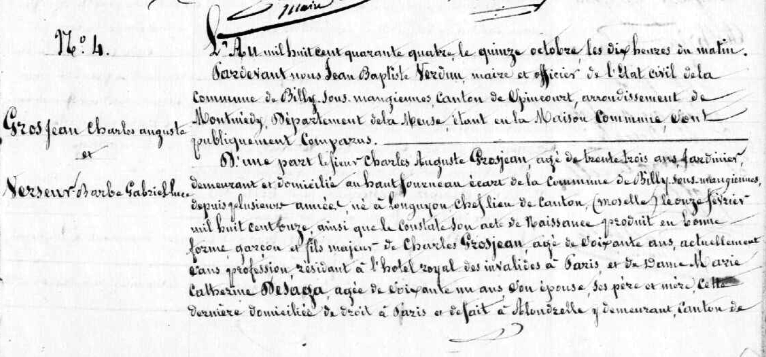 Maire
N.º 4.
L'An mil huit cent quarante quatre, le quinze octobre, les dix heures du matin.
Pardevant nous Jean Baptiste Verdun maire et officier de l'Etat civil dela
Commune de Billy-sous-mangiennes, Canton de Spincourt, arrondissement de
Montmédy, Département dela Meuse, étant en la Maison Commune, sont
publiquement Comparus.
GrosJean Charles auguste
et
Verseur Barbe Gabriel Luce
D'une part le sieur Charles Auguste Grosjean, agé de trente trois ans, Jardinier,
demeurant et domicilié au haut fourneau écart de la Commune de Billy-sous-mangiennes,
depuis plusieurs années, né à Longuyon Chef lieu de Canton, (moselle) le onze février
mil huit cent onze, ainsi que le Constate son acte de Naissance produit en bonne
forme garçon et fils majeur de Charles Grosjean agé de soixante ans, actuellement
sans profession, résidant à l'hotel royal des invalides à Paris, et de Dame Marie
Catherine Desaga, agée de soixante un ans son épouse, ses père et mère, Cette
dernière domiciliée de droit à Paris et defait à Mondrelle y demeurant, Canton de